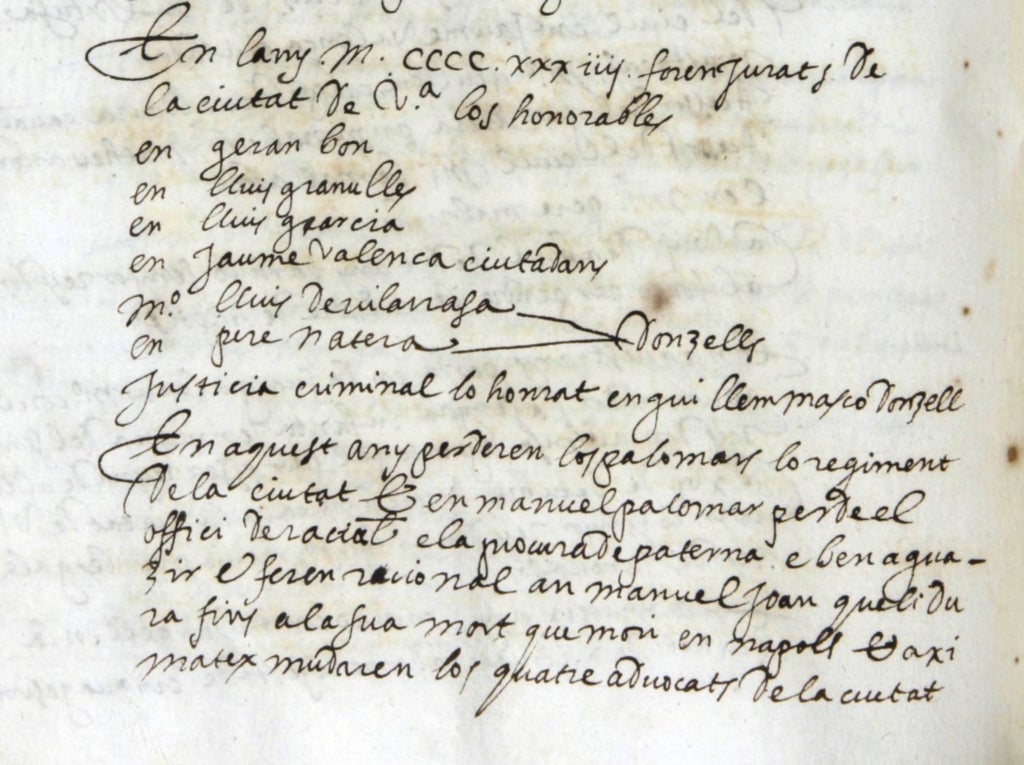 En lany .M. CCCC.xxxiiij. foren Jurats de
la ciutat de V.ª los honorables
en geran bon
en lluis granulles
en lluis garcia
en Jaume Valenca ciutadans
M.º lluis de vilarrasa
en pere Natera Donzells
Justicia criminal lo honrat en guillem masco donzell
En aquest any perderen los palomars lo regiment
de la ciutat E en manuel palomar perde el
offici de racial e la procura de paterna e benagua-
zir E feren racional an manuel Joan que li du
ra fins a la sua mort que mori en napols E axi
matex mudaren los quatre advocats de la ciutat